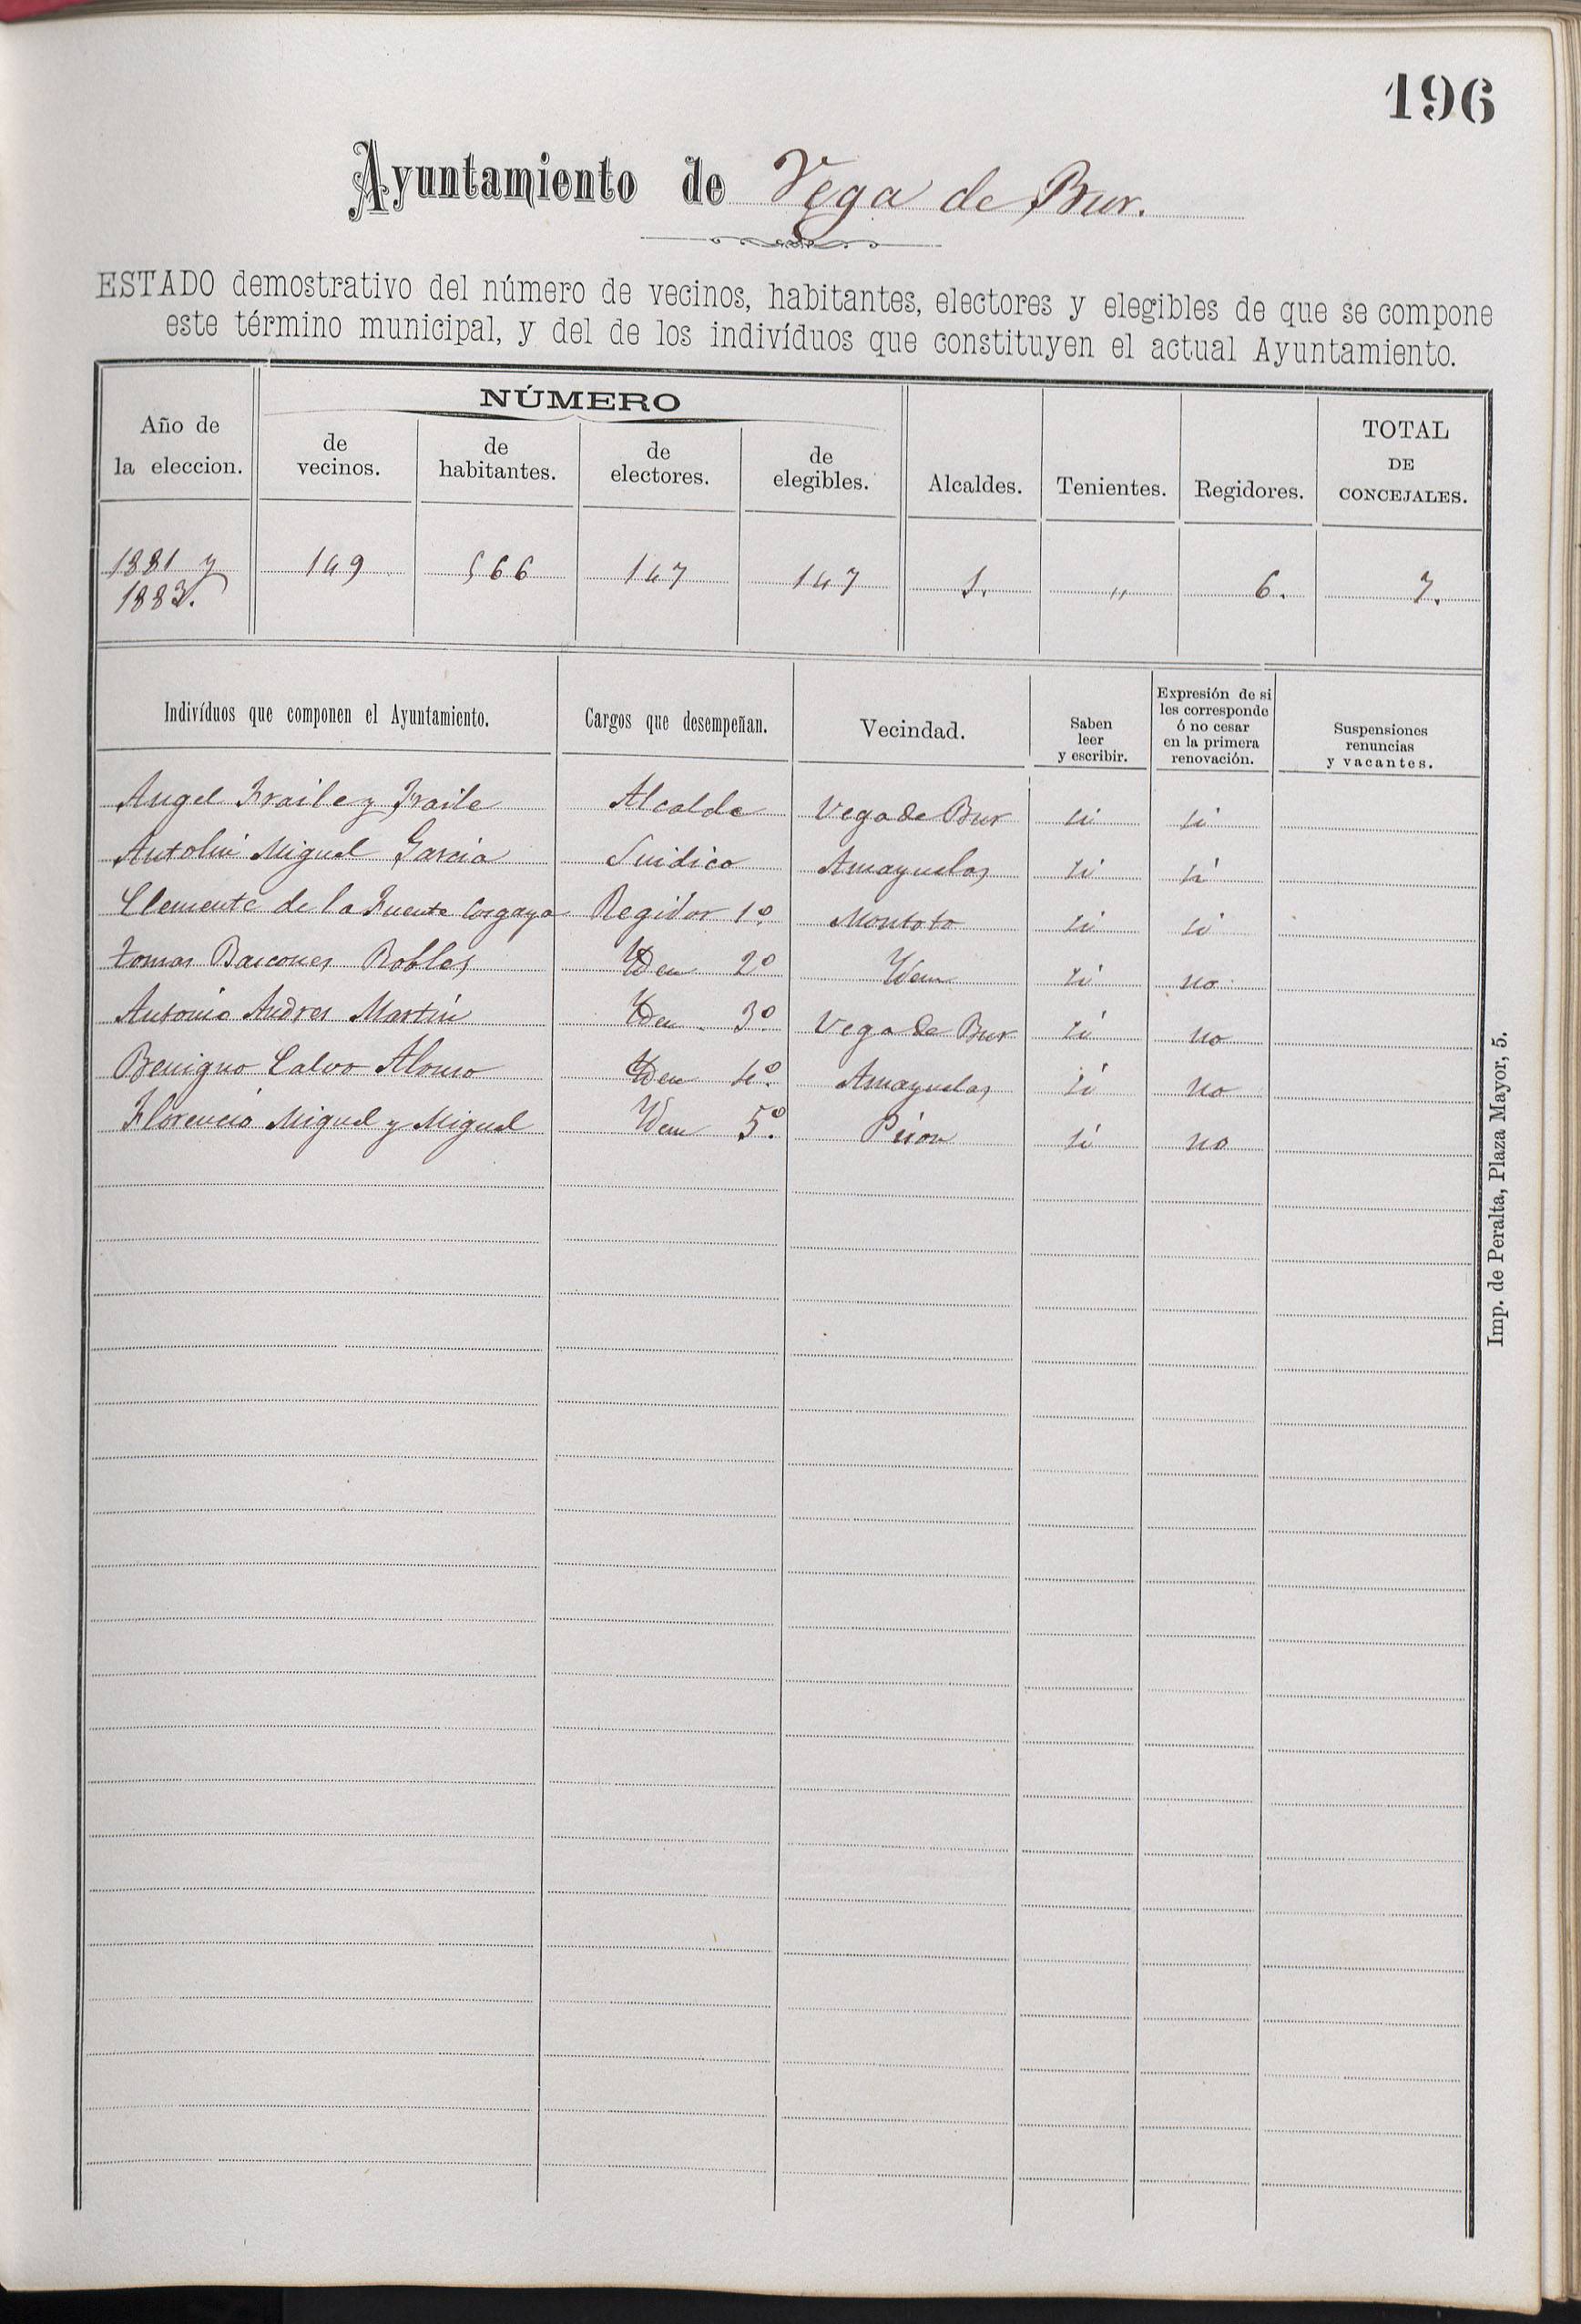 196
Ayuntamiento de Vega de Bur.
ESTADO demostrativo del número de vecinos, habitantes, electores y elegibles de que se compone
este término municipal, y del de los indivíduos que constituyen el actual Ayuntamiento.
Año de la eleccion.
NÚMERO
de vecinos.
de habitantes.
de electores.
de elegibles.
Alcaldes.
Tenientes.
Regidores.
TOTAL DE CONCEJALES.
1881 y 1883. 149 566 147 147 1. " 6. 7.
Indivíduos que componen el Ayuntamiento.
Cargos que desempeñan.
Vecindad.
Saben leer y escribir.
Expresión de si les corresponde ó no cesar en la primera renovación.
Suspensiones renuncias y vacantes.
Angel Fraile y Fraile Alcalde Vega de Bur si si
Antolin Miguel Garcia Sindico Amayuelas si si
Clemente de la Fuente Regidor 1º Montoto si si
Tomas Bascones Robles Ydem 2º Ydem si no
Antonio Andres Martin Ydem 3º Vega de Bur si no
Benigno Calvo Alonso Ydem 4º Amayuelas si no
Florencio Miguel y Miguel Ydem 5º. Pison si no
Imp. de Peralta, Plaza Mayor, 5.